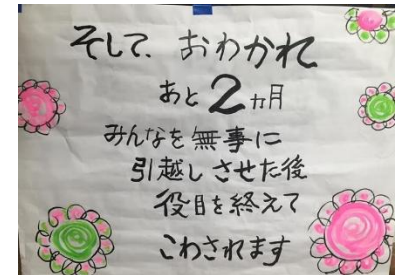 そして、おわかれ
あと2ヵ月
みんなを無事に
引越しさせた後
役目を終えて
こわされます